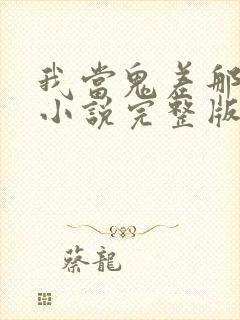 我當鬼差那
小說完整版
蔡龍